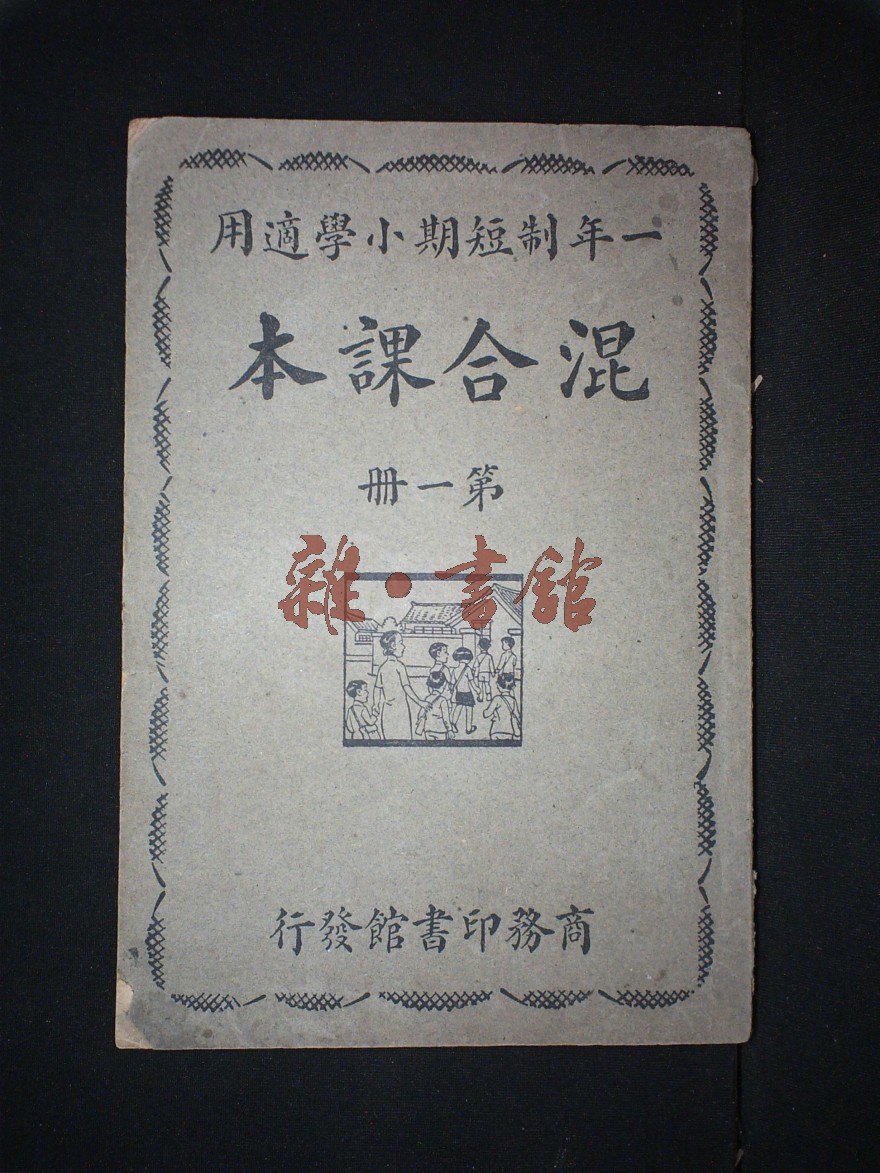 一年制短期小學適用
混合課本
第一冊
雜·書館
商務印書館發行